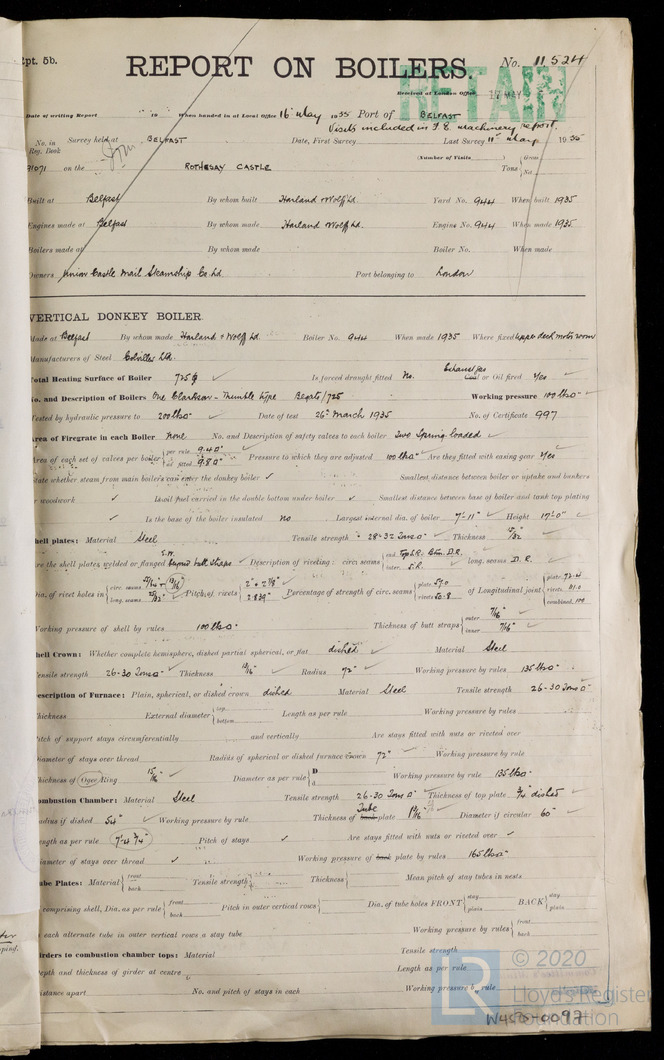 Rpt. 5b.
REPORT ON BOILERS.
No. 11524
RETAIN
Received at London Office 17 MAY
Date of writing Report 19 When handed in at Local Office 16 May 1935 Port of BELFAST
Visits included in F.E. machinery report.
No. in Reg. Book Survey held at BELFAST Date, First Survey Last Survey 11th May 1935
(Number of Visits )
91071 on the ROTHESAY CASTLE Tons { Gross Net
Built at Belfast By whom built Harland & Wolff Ld. Yard No. 944 When built 1935
Engines made at Belfast By whom made Harland & Wolff Ld. Engine No. 944 When made 1935
Boilers made at By whom made Boiler No. When made
Owners Union Castle Mail Steamship Co Ld. Port belonging to London
VERTICAL DONKEY BOILER.
Made at Belfast By whom made Harland & Wolff Ld. Boiler No. 944 When made 1935 Where fixed upper deck motor room
Manufacturers of Steel Colvilles Ltd.
Total Heating Surface of Boiler 725 Is forced draught fitted No. Exhaust gas Coal or Oil fired Yes
No. and Description of Boilers One Clarkson - Thimble type Working pressure 100 lbs
Tested by hydraulic pressure to 200 lbs Date of test 26th March 1935 No. of Certificate 997
Area of Firegrate in each Boiler None No. and Description of safety valves to each boiler Two Spring loaded
Area of each set of valves per boiler { per rule 9.40 as fitted 9.80 Pressure to which they are adjusted 100 lbs Are they fitted with easing gear Yes
State whether steam from main boilers can enter the donkey boiler Smallest distance between boiler or uptake and bunkers
or woodwork Is oil fuel carried in the double bottom under boiler Smallest distance between base of boiler and tank top plating
Is the base of the boiler insulated No Largest internal dia. of boiler 7'-11" Height 17'-0"
Shell plates: Material Steel Tensile strength 28-32 Tons Thickness 15/32
Are the shell plates welded or flanged butt straps Description of riveting: circ. seams { end Top S.R. Btm. D.R. inter. S.R. long. seams D.R.
Dia. of rivet holes in { circ. seams long. seams Pitch of rivets { Percentage of strength of circ. seams { plate 57.0 rivets 50.8 of Longitudinal joint { plate 72.4 rivets combined
Working pressure of shell by rules 100 lbs Thickness of butt straps { outer 7/16" inner 7/16"
Shell Crown: Whether complete hemisphere, dished partial spherical, or flat dished Material Steel
Tensile strength 26-30 Tons Thickness 13/16" Radius 72" Working pressure by rules 135 lbs
Description of Furnace: Plain, spherical, or dished crown dished Material Steel Tensile strength 26-30 Tons
Thickness External diameter { top bottom Length as per rule Working pressure by rules
Pitch of support stays circumferentially and vertically Are stays fitted with nuts or riveted over
Diameter of stays over thread Radius of spherical or dished furnace crown 72" Working pressure by rule
Thickness of Ogee Ring 15/16 Diameter as per rule { D d Working pressure by rule 135 lbs
Combustion Chamber: Material Steel Tensile strength 26-30 Tons Thickness of top plate 3/4" dished
Radius if dished 54" Working pressure by rule Thickness of Tube back plate 1 3/16" Diameter if circular 60"
Length as per rule 7'-4 3/4" Pitch of stays Are stays fitted with nuts or riveted over
Diameter of stays over thread Working pressure of back plate by rules 165 lbs
Tube Plates: Material { front back Tensile strength { Thickness { Mean pitch of stay tubes in nests
If comprising shell, Dia. as per rule { front back Pitch in outer vertical rows { Dia. of tube holes FRONT { stay plain BACK { stay plain
Is each alternate tube in outer vertical rows a stay tube Working pressure by rules { front back
Girders to combustion chamber tops: Material Tensile strength
Depth and thickness of girder at centre Length as per rule
Distance apart No. and pitch of stays in each Working pressure by rule
© 2020
Lloyd's Register
Foundation
W456-0097